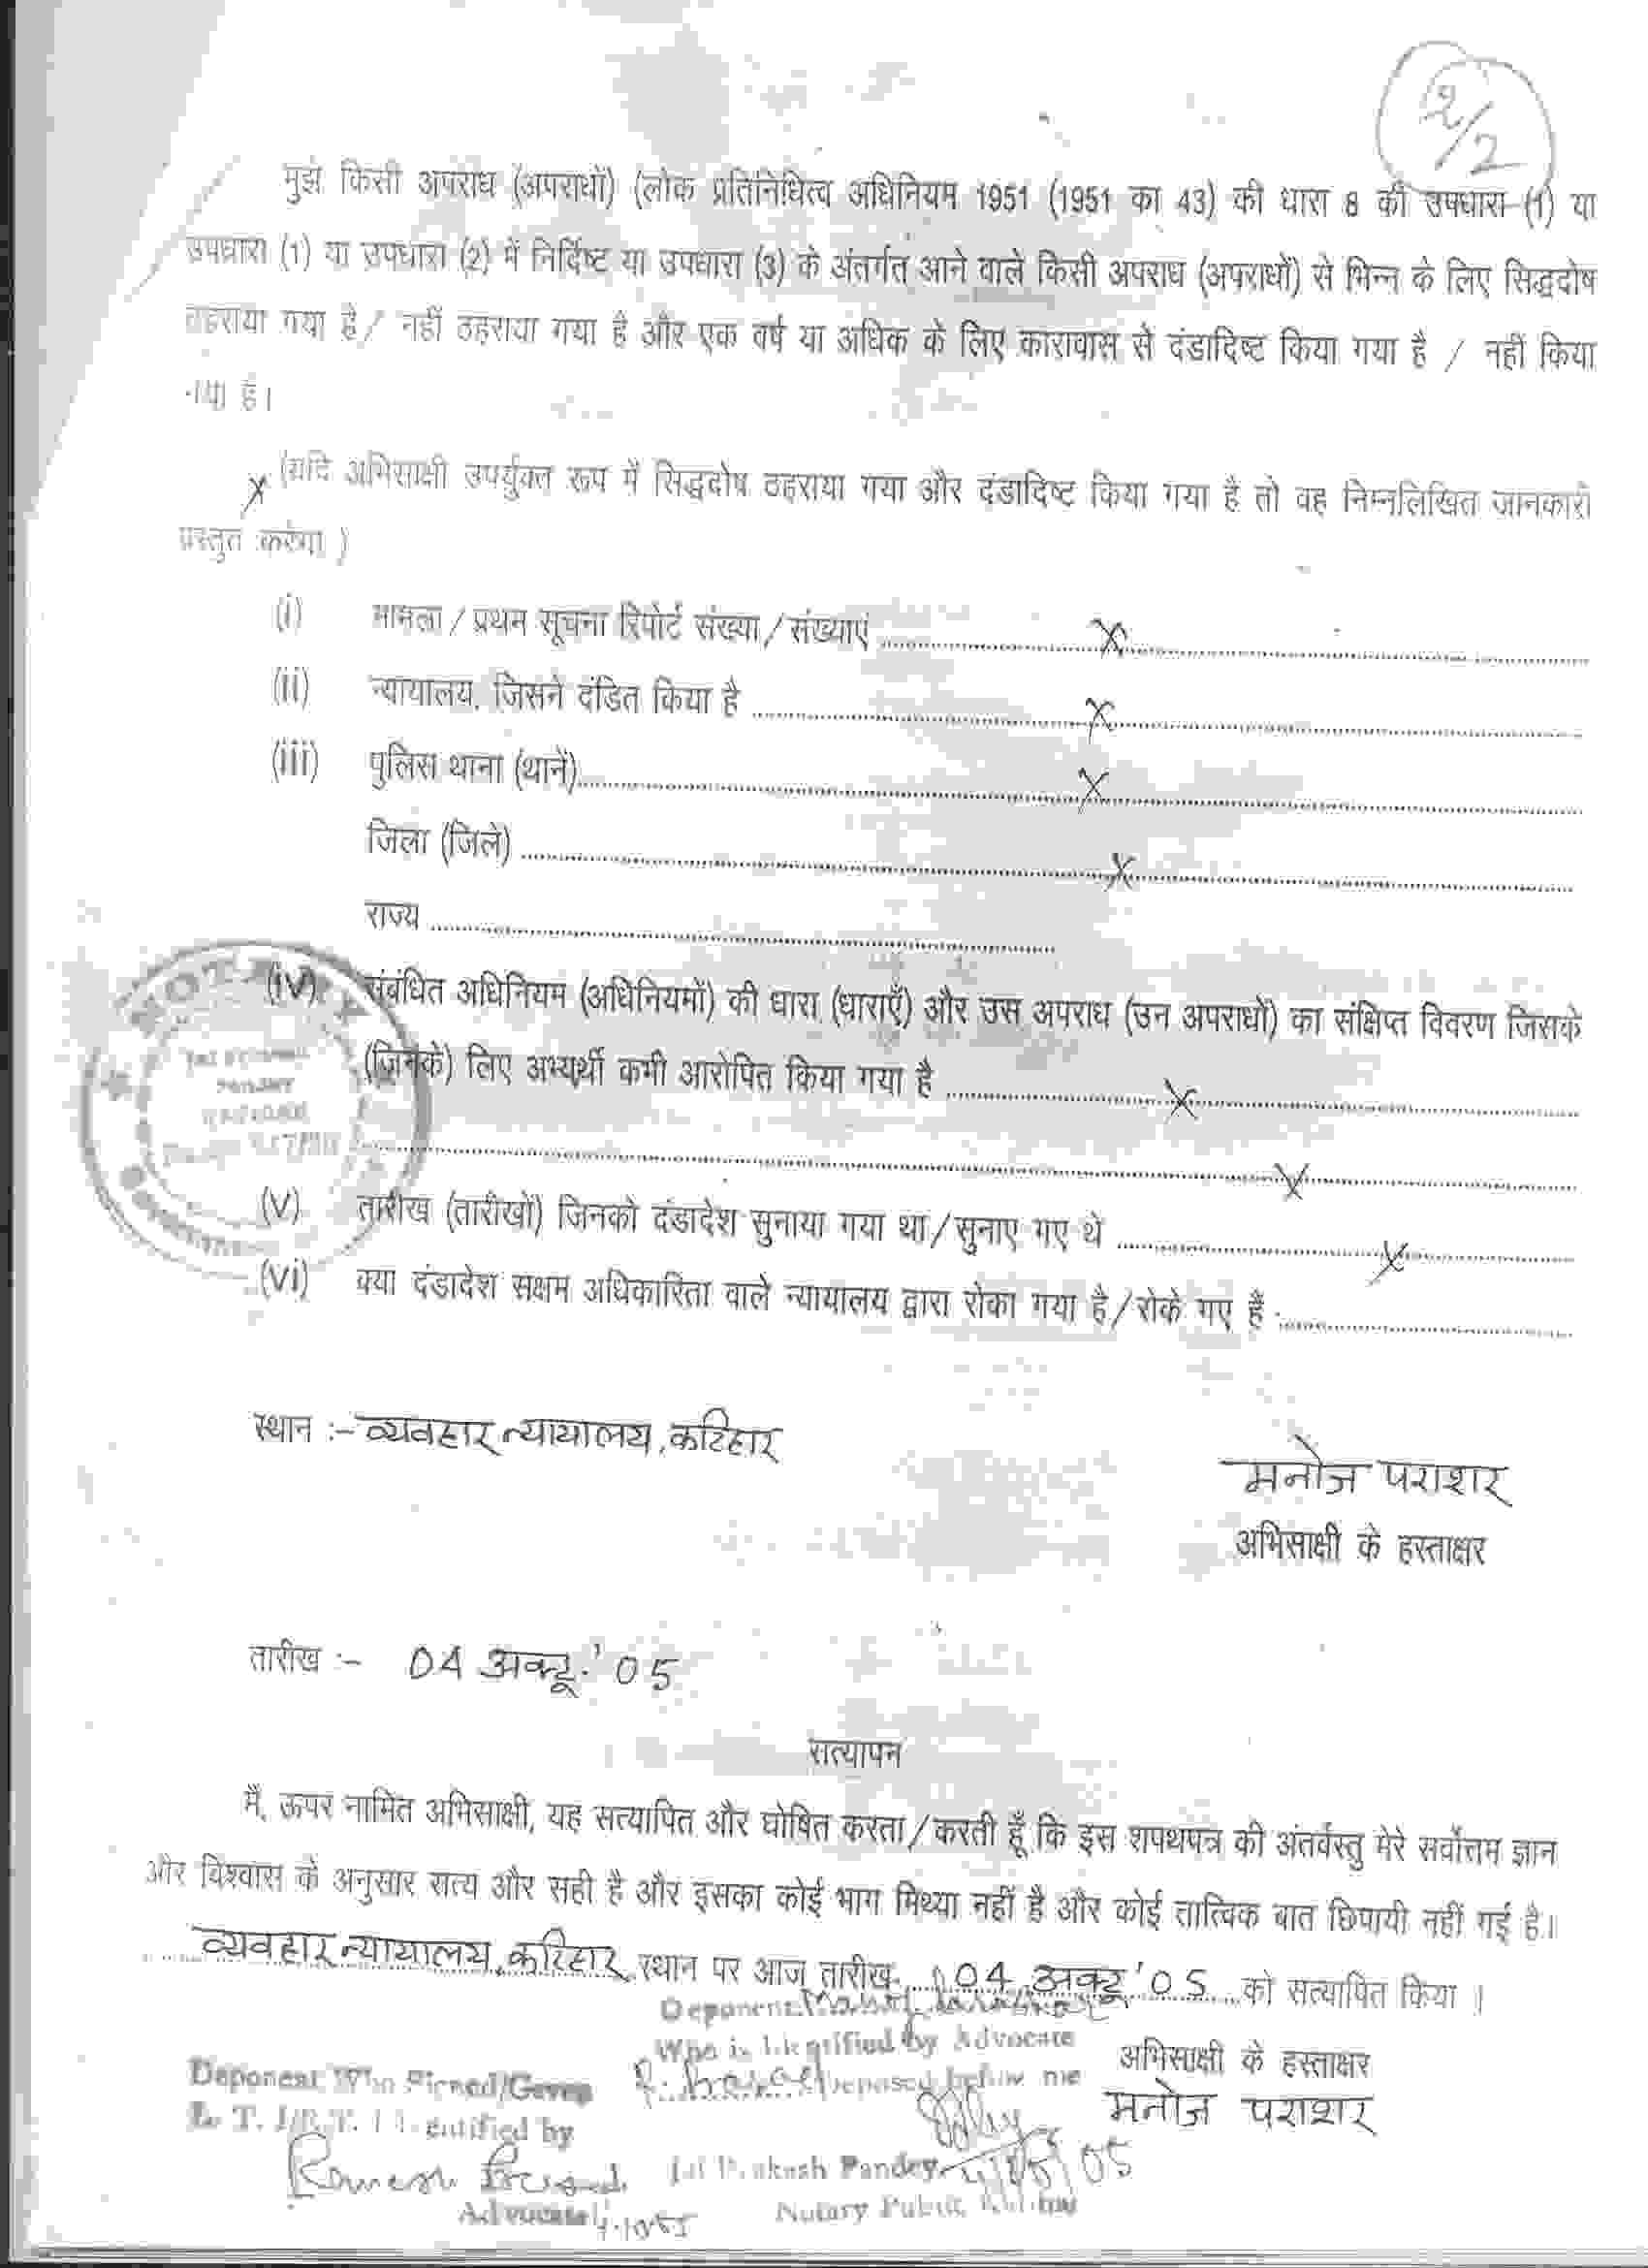 2/2
मुझे किसी अपराध (अपराधों) (लोक प्रतिनिधित्व अधिनियम 1951 (1951 का 43) की धारा 8 की उपधारा (1) या
उपधारा (1) या उपधारा (2) में निर्दिष्ट या उपधारा (3) के अंतर्गत आने वाले किसी अपराध (अपराधों) से भिन्न के लिए सिद्धदोष
ठहराया गया है / नहीं ठहराया गया है और एक वर्ष या अधिक के लिए कारावास से दंडादिष्ट किया गया है / नहीं किया
गया है।
X (यदि अभिसाक्षी उपर्युक्त रूप में सिद्धदोष ठहराया गया और दंडादिष्ट किया गया है तो वह निम्नलिखित जानकारी
प्रस्तुत करेगा )
(i) मामला / प्रथम सूचना रिपोर्ट संख्या / संख्याएं X
(ii) न्यायालय, जिसने दंडित किया है X
(iii) पुलिस थाना (थाने) X
जिला (जिले) X
राज्य
(iv) संबंधित अधिनियम (अधिनियमों) की धारा (धाराएँ) और उस अपराध (उन अपराधों) का संक्षिप्त विवरण जिसके
(जिनके) लिए अभ्यर्थी कभी आरोपित किया गया है X
X
(v) तारीख (तारीखों) जिनको दंडादेश सुनाया गया था / सुनाए गए थे X
(vi) क्या दंडादेश सक्षम अधिकारिता वाले न्यायालय द्वारा रोका गया है / रोके गए हैं
NOTARY
स्थान :- व्यवहार न्यायालय, कटिहार
मनोज पराशर
अभिसाक्षी के हस्ताक्षर
तारीख :- 04 अक्टू.' 05
सत्यापन
मैं, ऊपर नामित अभिसाक्षी, यह सत्यापित और घोषित करता / करती हूँ कि इस शपथपत्र की अंतर्वस्तु मेरे सर्वोत्तम ज्ञान
और विश्वास के अनुसार सत्य और सही है और इसका कोई भाग मिथ्या नहीं है और कोई तात्विक बात छिपायी नहीं गई है।
व्यवहार न्यायालय, कटिहार स्थान पर आज तारीख 04 अक्टू' 05 को सत्यापित किया ।
Deponent
Who is Identified by Advocate
deposed before me
अभिसाक्षी के हस्ताक्षर
मनोज पराशर
Deponent Who Signed/Given
L. T. I/R.T. I Identified by
Ramesh Prasad
Advocate
Jai Prakash Pandey
Notary Public, Katihar